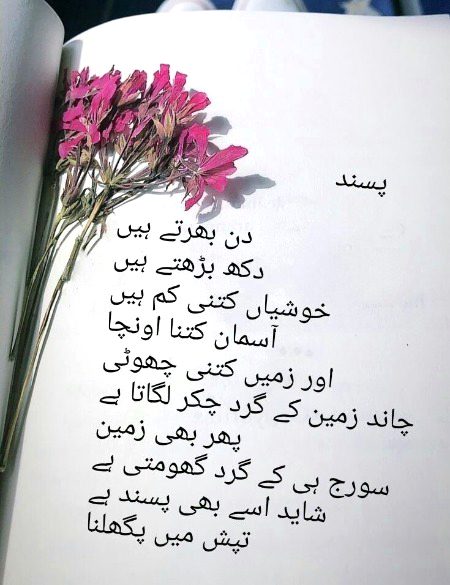 پسند
دن بھرتے ہیں
دکھ بڑھتے ہیں
خوشیاں کتنی کم ہیں
آسمان کتنا اونچا
اور زمیں کتنی چھوٹی
چاند زمین کے گرد چکر لگاتا ہے
پھر بھی زمین
سورج ہی کے گرد گھومتی ہے
شاید اسے بھی پسند ہے
تپش میں پگھلنا